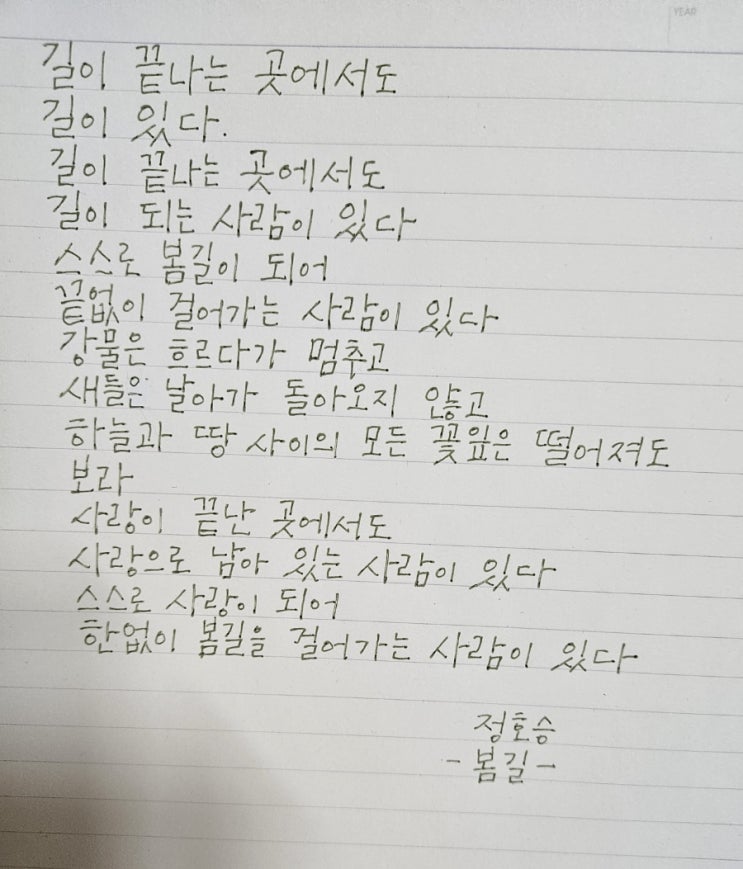 YEAR
길이 끝나는 곳에서도
길이 있다.
길이 끝나는 곳에서도
길이 되는 사람이 있다
스스로 봄길이 되어
끝없이 걸어가는 사람이 있다
강물은 흐르다가 멈추고
새들은 날아가 돌아오지 않고
하늘과 땅 사이의 모든 꽃잎은 떨어져도
보라
사랑이 끝난 곳에서도
사랑으로 남아 있는 사람이 있다
스스로 사랑이 되어
한없이 봄길을 걸어가는 사람이 있다
정호승
- 봄길 -